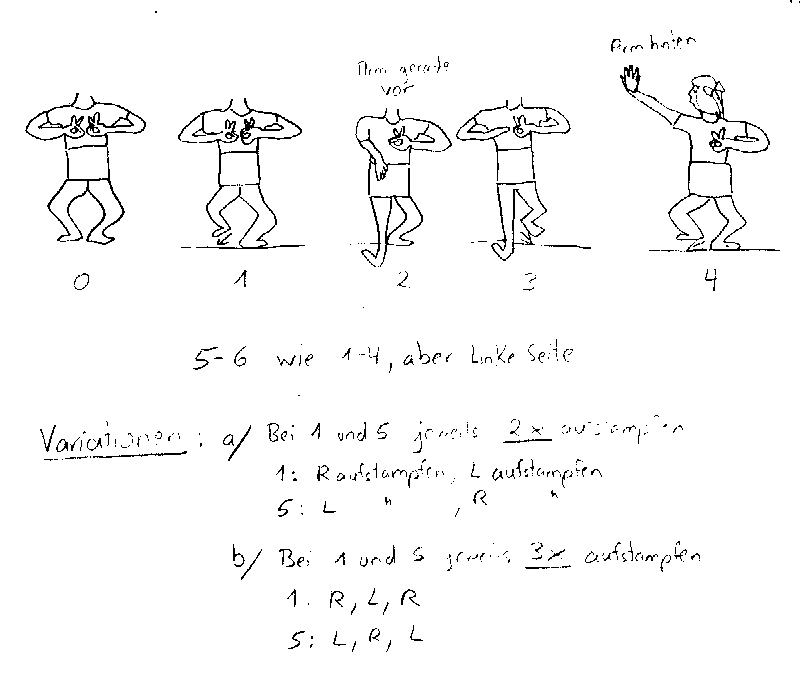 Arm hinten
Arm gerade
vor
0 1 2 3 4
5-6 wie 1-4, aber Linke Seite
Variationen: a/ Bei 1 und 5 jeweils 2x aufstampfen
1: R aufstampfen, L aufstampfen
5: L " , R "
b/ Bei 1 und 5 jeweils 3x aufstampfen
1. R, L, R
5: L, R, L